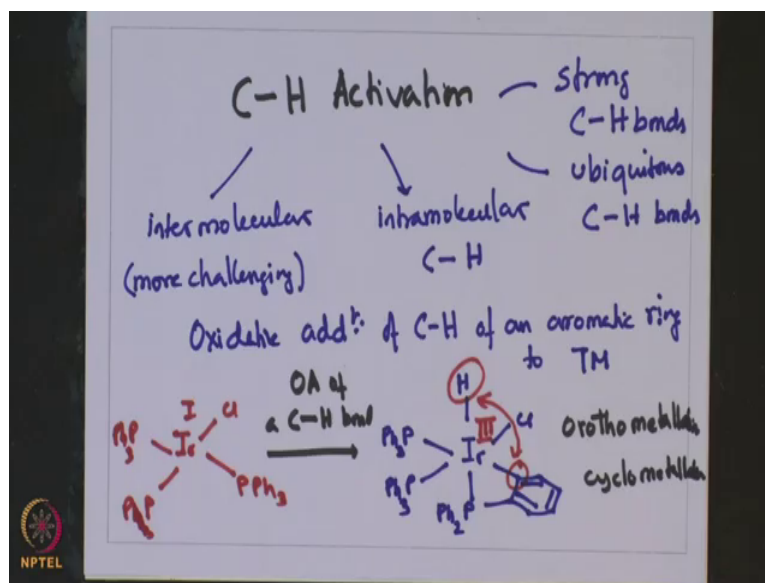 C-H Activation
strong
C-H bonds
ubiquitous
C-H bonds
intermolecular
(more challenging)
intramolecular
C-H
Oxidative addn. of C-H of an arromatic ring
to TM
I
Ph3P
Ir
Cl
Ph3P
PPh3
OA of
a C-H bond
H
III
Ph3P
Ir
Cl
Ph3P
Ph2P
Orothometallation
cyclometallation
NPTEL